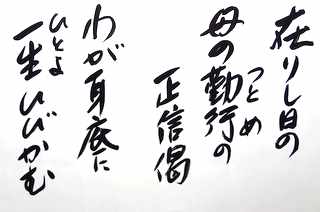 在りし日の
母の勤行の
つとめ
正信偈
わが耳底に
一生ひびかむ
ひとよ